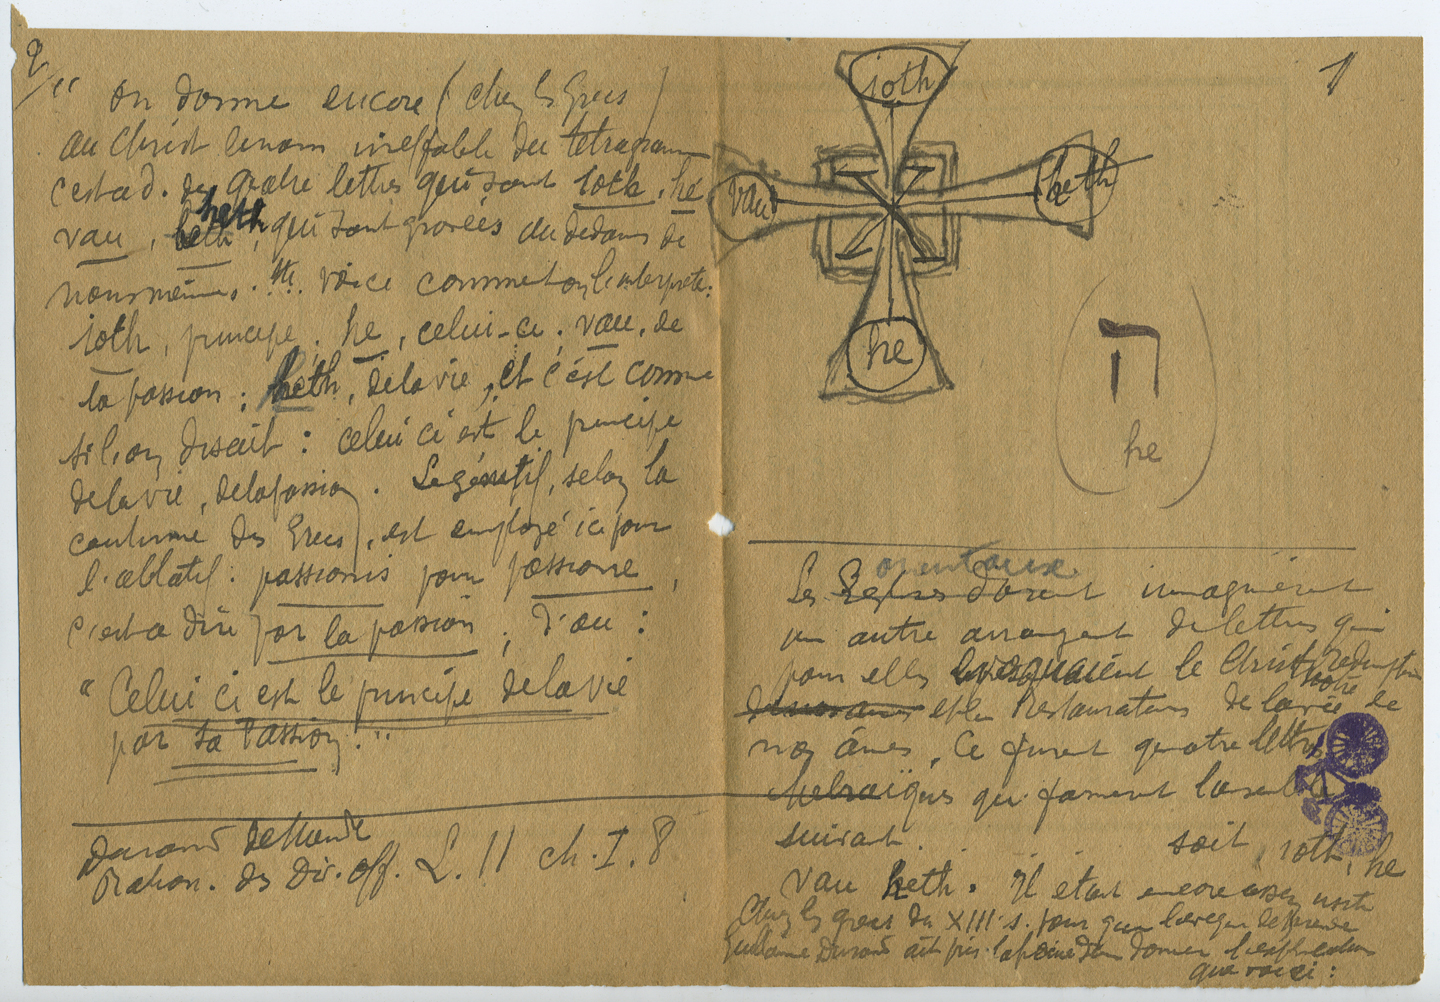 1
ioth
vau
heth
he
ה
he
orientaux
Les Eglises d'orient imaginèrent
un autre arrangent de lettres qui
pour elles évoquaient le Christ redempteur
et le Restaurateur de la vie de
notre
nos âmes, Ce furent quatre lettres
hebraïques qui forment
suivant. soit, ioth, he
vau heth. Il etait encore assez usité
Chez les grecs du XIII s. pour que l'évêque de Mende
Guillaume Durand ait pris la peine d'en donner l'explication
que voici :
2
" On donne encore (chez les Grecs)
au Christ le nom ineffable du tétragramme
c'est a d. des quatre lettres qui sont ioth, he
heth
vau, heth, qui sont gravées au dedans de
nous mêmes. voici comment on l'interprete :
ioth, principe ; he, celui-ci ; vau, de
la passion ; heth, de la vie, et c'est comme
si l'on disait : celui ci est le principe
de la vie, de la passion. Le génitif, selon la
coutume des Grecs, est employé ici pour
l'ablatif : passionis pour passione,
c'est a dire par la passion, d'ou :
"Celui ci est le principe de la vie
par sa Passion."
Durand de Mende
Ration. des Div. off. L. II ch. I. 8